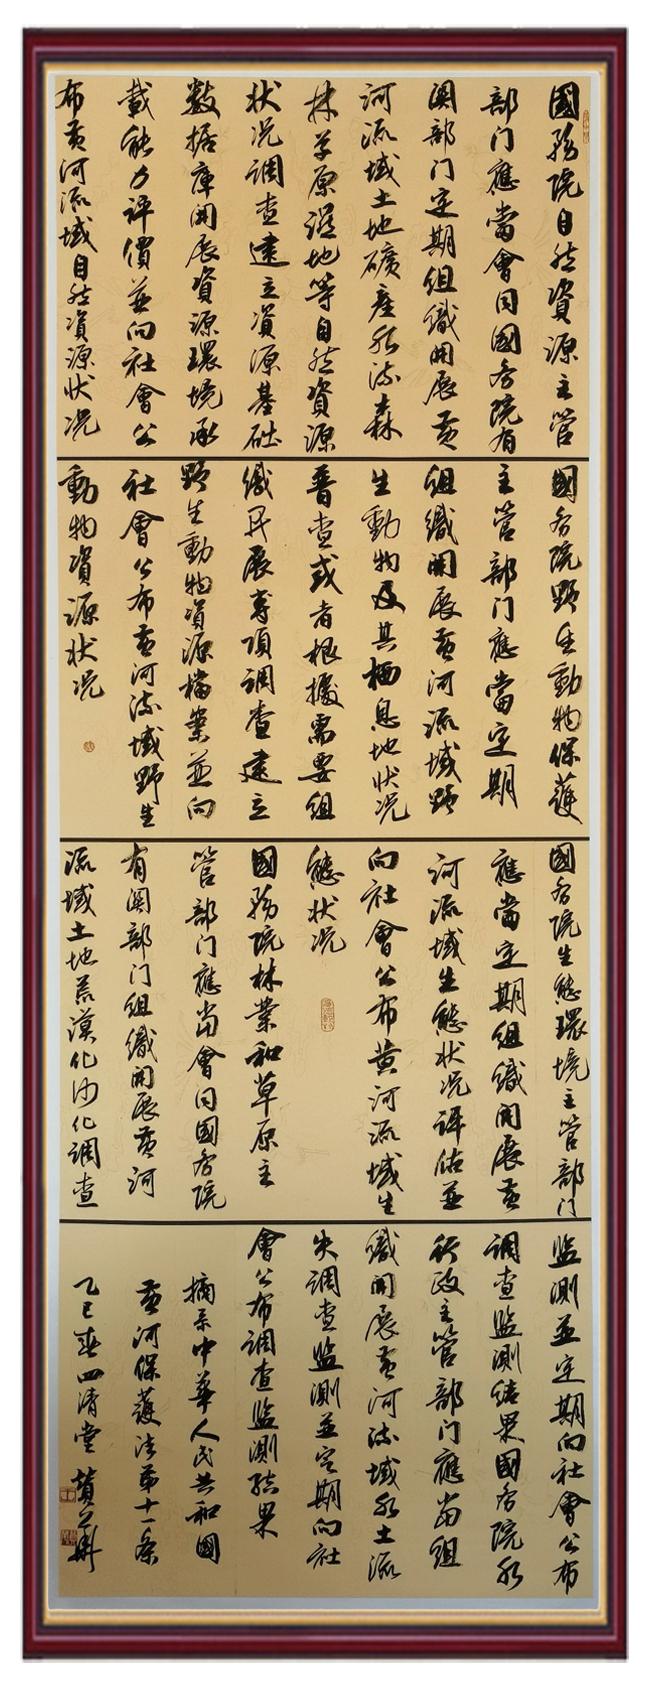 國務院自然資源主管
部门應當會同國务院有
関部门定期组織開展黄
河流域土地礦産水流森
林草原濕地等自然資源
状况調查建立資源基础
数据庫開展資源環境承
載能力评價並向社會公
布黄河流域自然資源状况
國务院野生動物保護
主管部门應當定期
组織開展黄河流域野
生動物及其栖息地状况
普查或者根據需要组
織開展專項調查建立
野生動物資源檔案並向
社會公布黄河流域野生
動物資源状况
國务院生態環境主管部门
應當定期组織開展黄
河流域生態状况评估並
向社會公布黄河流域生
態状况
國務院林業和草原主
管部门應當會同國务院
有関部门组織開展黄河
流域土地荒漠化沙化調查
监測並定期向社會公布
調查监測结果國务院水
行政主管部门應當组
織開展黄河流域水土流
失調查监測並定期向社
會公布調查监測结果
摘录中華人民共和國
黄河保護法第十一条
乙巳春四清堂